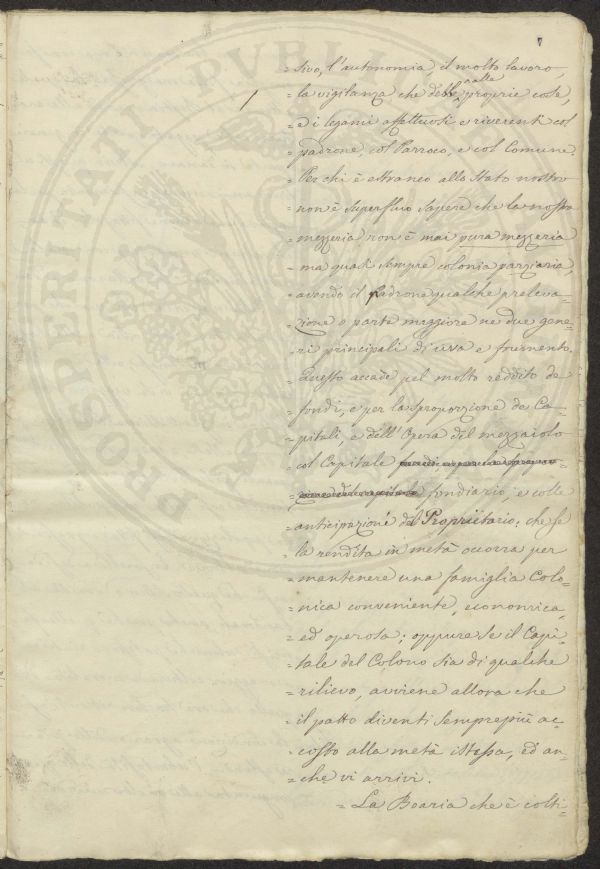 7
= sivo, l'autonomia, il molto lavoro,
= la vigilanza che delle alle proprie cose,
= ed i legami affettuosi e riverenti col
= padrone, col Parroco, e col Comune.
= Per chi è estraneo allo Stato nostro
= non è superfluo sapere che la nostra
= mezzeria non è mai pura mezzeria
= ma quasi sempre colonia parziaria,
= avendo il Padrone qualche preleva=
= zione o parte maggiore ne due gene=
= ri principali di uva e frumento.
= Questo accade pel molto reddito de
= fondi, e per la sproporzione de Ca=
= pitali, e dell'Opera del mezzaiolo
= col Capitale
= fondiario, e colle
= anticipazioni del Proprietario; che se
= la rendita in metà occorra per
= mantenere una famiglia Colo=
= nica conveniente, economica,
= ed operosa; oppure se il Capi=
= tale del Colono sia di qualche
= rilievo, avviene allora che
= il patto diventi semprepiù ac=
= costo alla metà istessa, ed an=
= che vi arrivi.
= La Boaria che è colti=
PROSPERITATI PUBLI